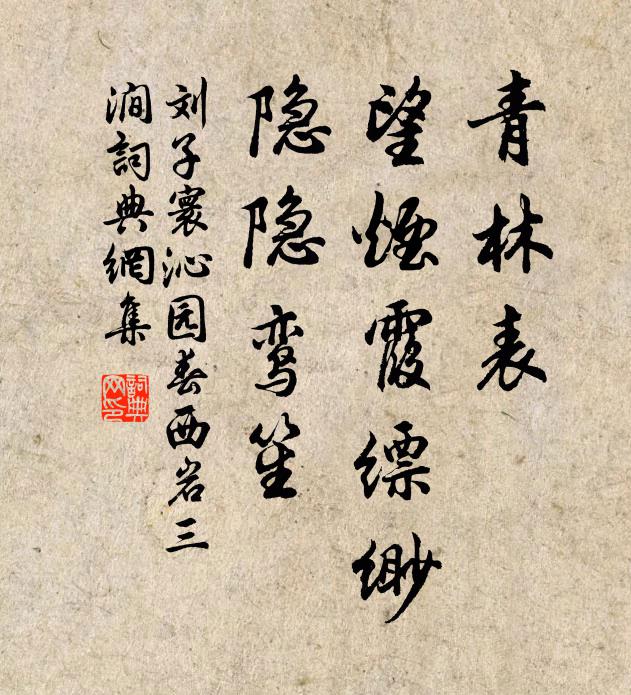 青林表
望煙霞缥缈
隐隐鸾笙
刘子寰沁园春西岩三
涧詞典網集
詞典网印